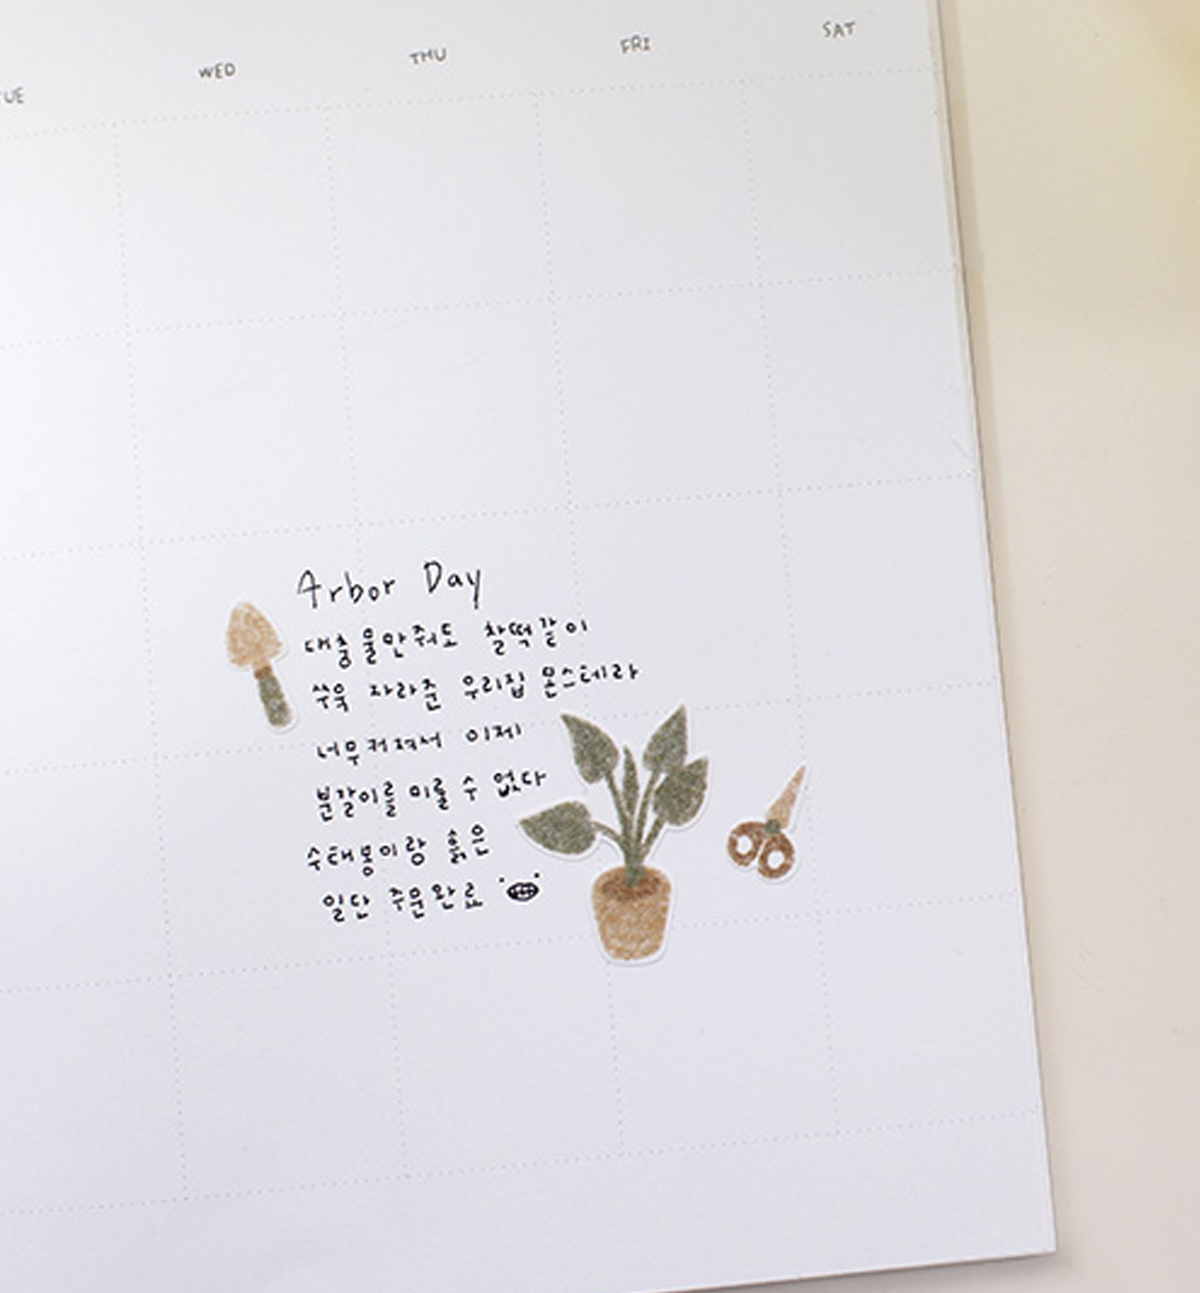 TUE WED THU FRI SAT
Arbor Day
대충 물안줘도 찰떡같이
쑤욱 자라준 우리집 몬스테라
너무커져서 이제
분갈이를 미룰 수 없다
수태봉이랑 흙은
일단 주문완료